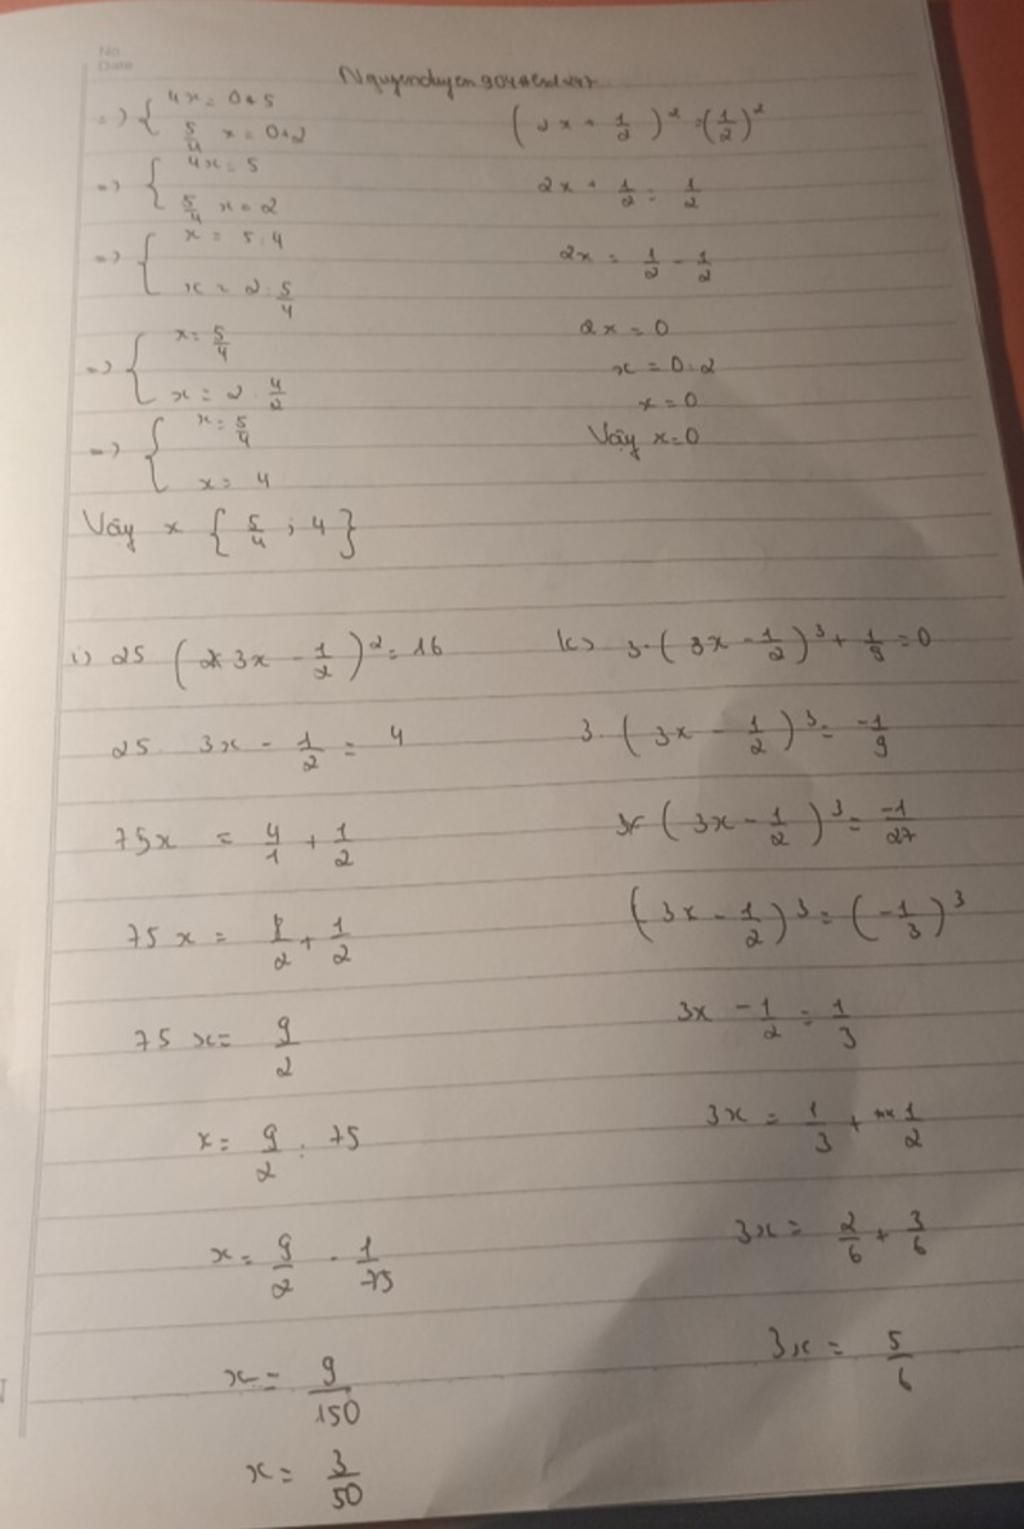 No.
Date
=> { 4x = 0+5
5/4 x = 0+2
=> { 4x = 5
5/4 x = 2
=> { x = 5:4
x = 2 : 5/4
=> { x = 5/4
x = 2 . 4/2
=> { x = 5/4
x = 4
Vậy x { 5/4 ; 4 }
(2x + 1/2)² = (1/2)²
2x + 1/2 = 1/2
2x = 1/2 - 1/2
2x = 0
x = 0:2
x = 0
Vậy x=0
i) 25 ( 3x - 1/2 )² = 16
25. 3x - 1/2 = 4
75x = 4/1 + 1/2
75x = 8/2 + 1/2
75x = 9/2
x = 9/2 : 75
x = 9/2 . 1/75
x = 9/150
x = 3/50
k) 3.( 3x - 1/2 )³ + 1/9 = 0
3. ( 3x - 1/2 )³ = -1/9
( 3x - 1/2 )³ = -1/27
( 3x - 1/2 )³ = ( -1/3 )³
3x - 1/2 = 1/3
3x = 1/3 + 1/2
3x = 2/6 + 3/6
3x = 5/6